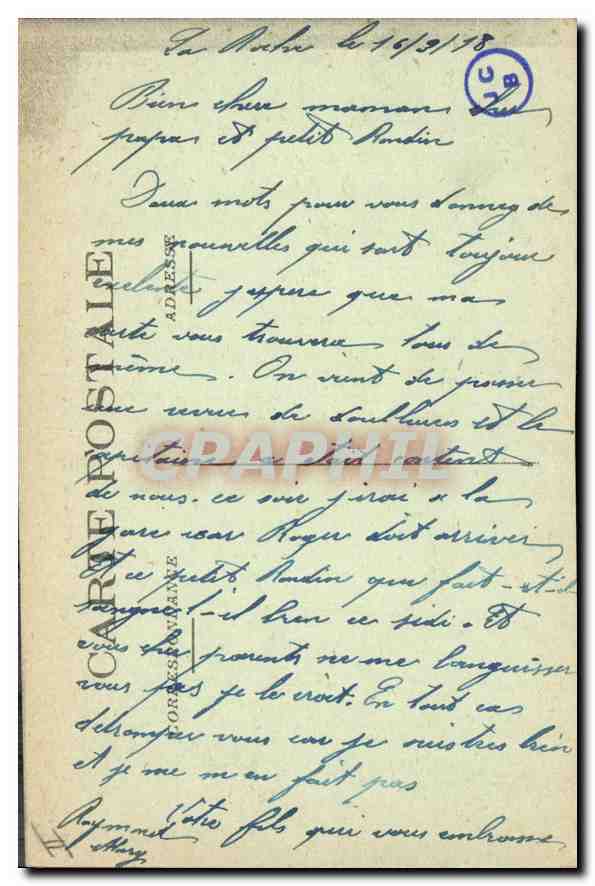 La Roche le 16/9/18
Bien chere maman cher
papas et petit Roudin
Deux mots pour vous donneg des
mes nouvelles qui sont toujour
exelente j espere que ma
carte vous trouvera tous de
même. On vient de passer
une revue de et le
capitaine était content
de nous. ce soir j irai a la
gare car Roger doit arriver
Et ce petit Roudin que fait-et-il
t-il bien ce sidi. Et
vous cher parents ne me languisser
vous pas je le croit. En tout cas
detromper vous car je suis tres bien
et je me m en fait pas
Votre fils qui vous embrasse
Raymond
Mary
II
CARTE POSTALE
ADRESSE
CORRESPONDANCE
CPAPHIL
J C B